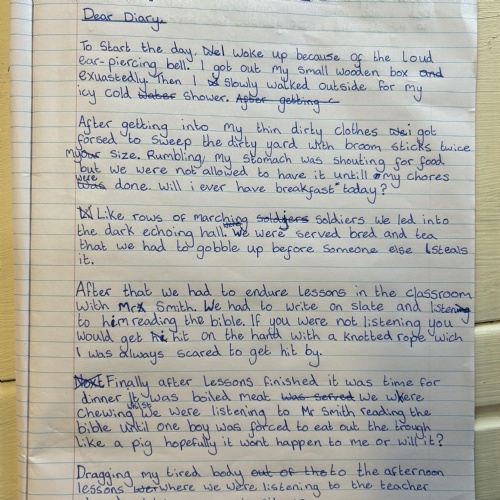 Dear Diary,
To Start the day, I woke up because of the Loud
ear-piercing bell. I got out my small wooden box and
exuastedly. Then I slowly walked outside for my
icy cold water shower. After getting
After getting into my thin dirty clothes i got
forsed to sweep the dirty yard with broom sticks twice
my size. Rumbling, my stomach was shouting for food
but we were not allowed to have it until my chores
were done. Will i ever have breakfast today?
Like rows of marching soldjers soldiers we led into
the dark echoing hall. We were served bred and tea
that we had to gobble up before someone else steals
it.
After that we had to endure lessons in the classroom
with Mr Smith. We had to write on slate and listening
to him reading the bible. If you were not listening you
would get hit on the hand with a knotted rope wich
I was always scared to get hit by.
Next Finally after Lessons finished it was time for
dinner It was boiled meat was served we where
chewing whilst we were listening to Mr Smith reading the
bible until one boy was forced to eat out the trough
Like a pig hopefully it wont happen to me or will it?
Dragging my tired body out of the to the afternoon
lessons where we were listening to the teacher